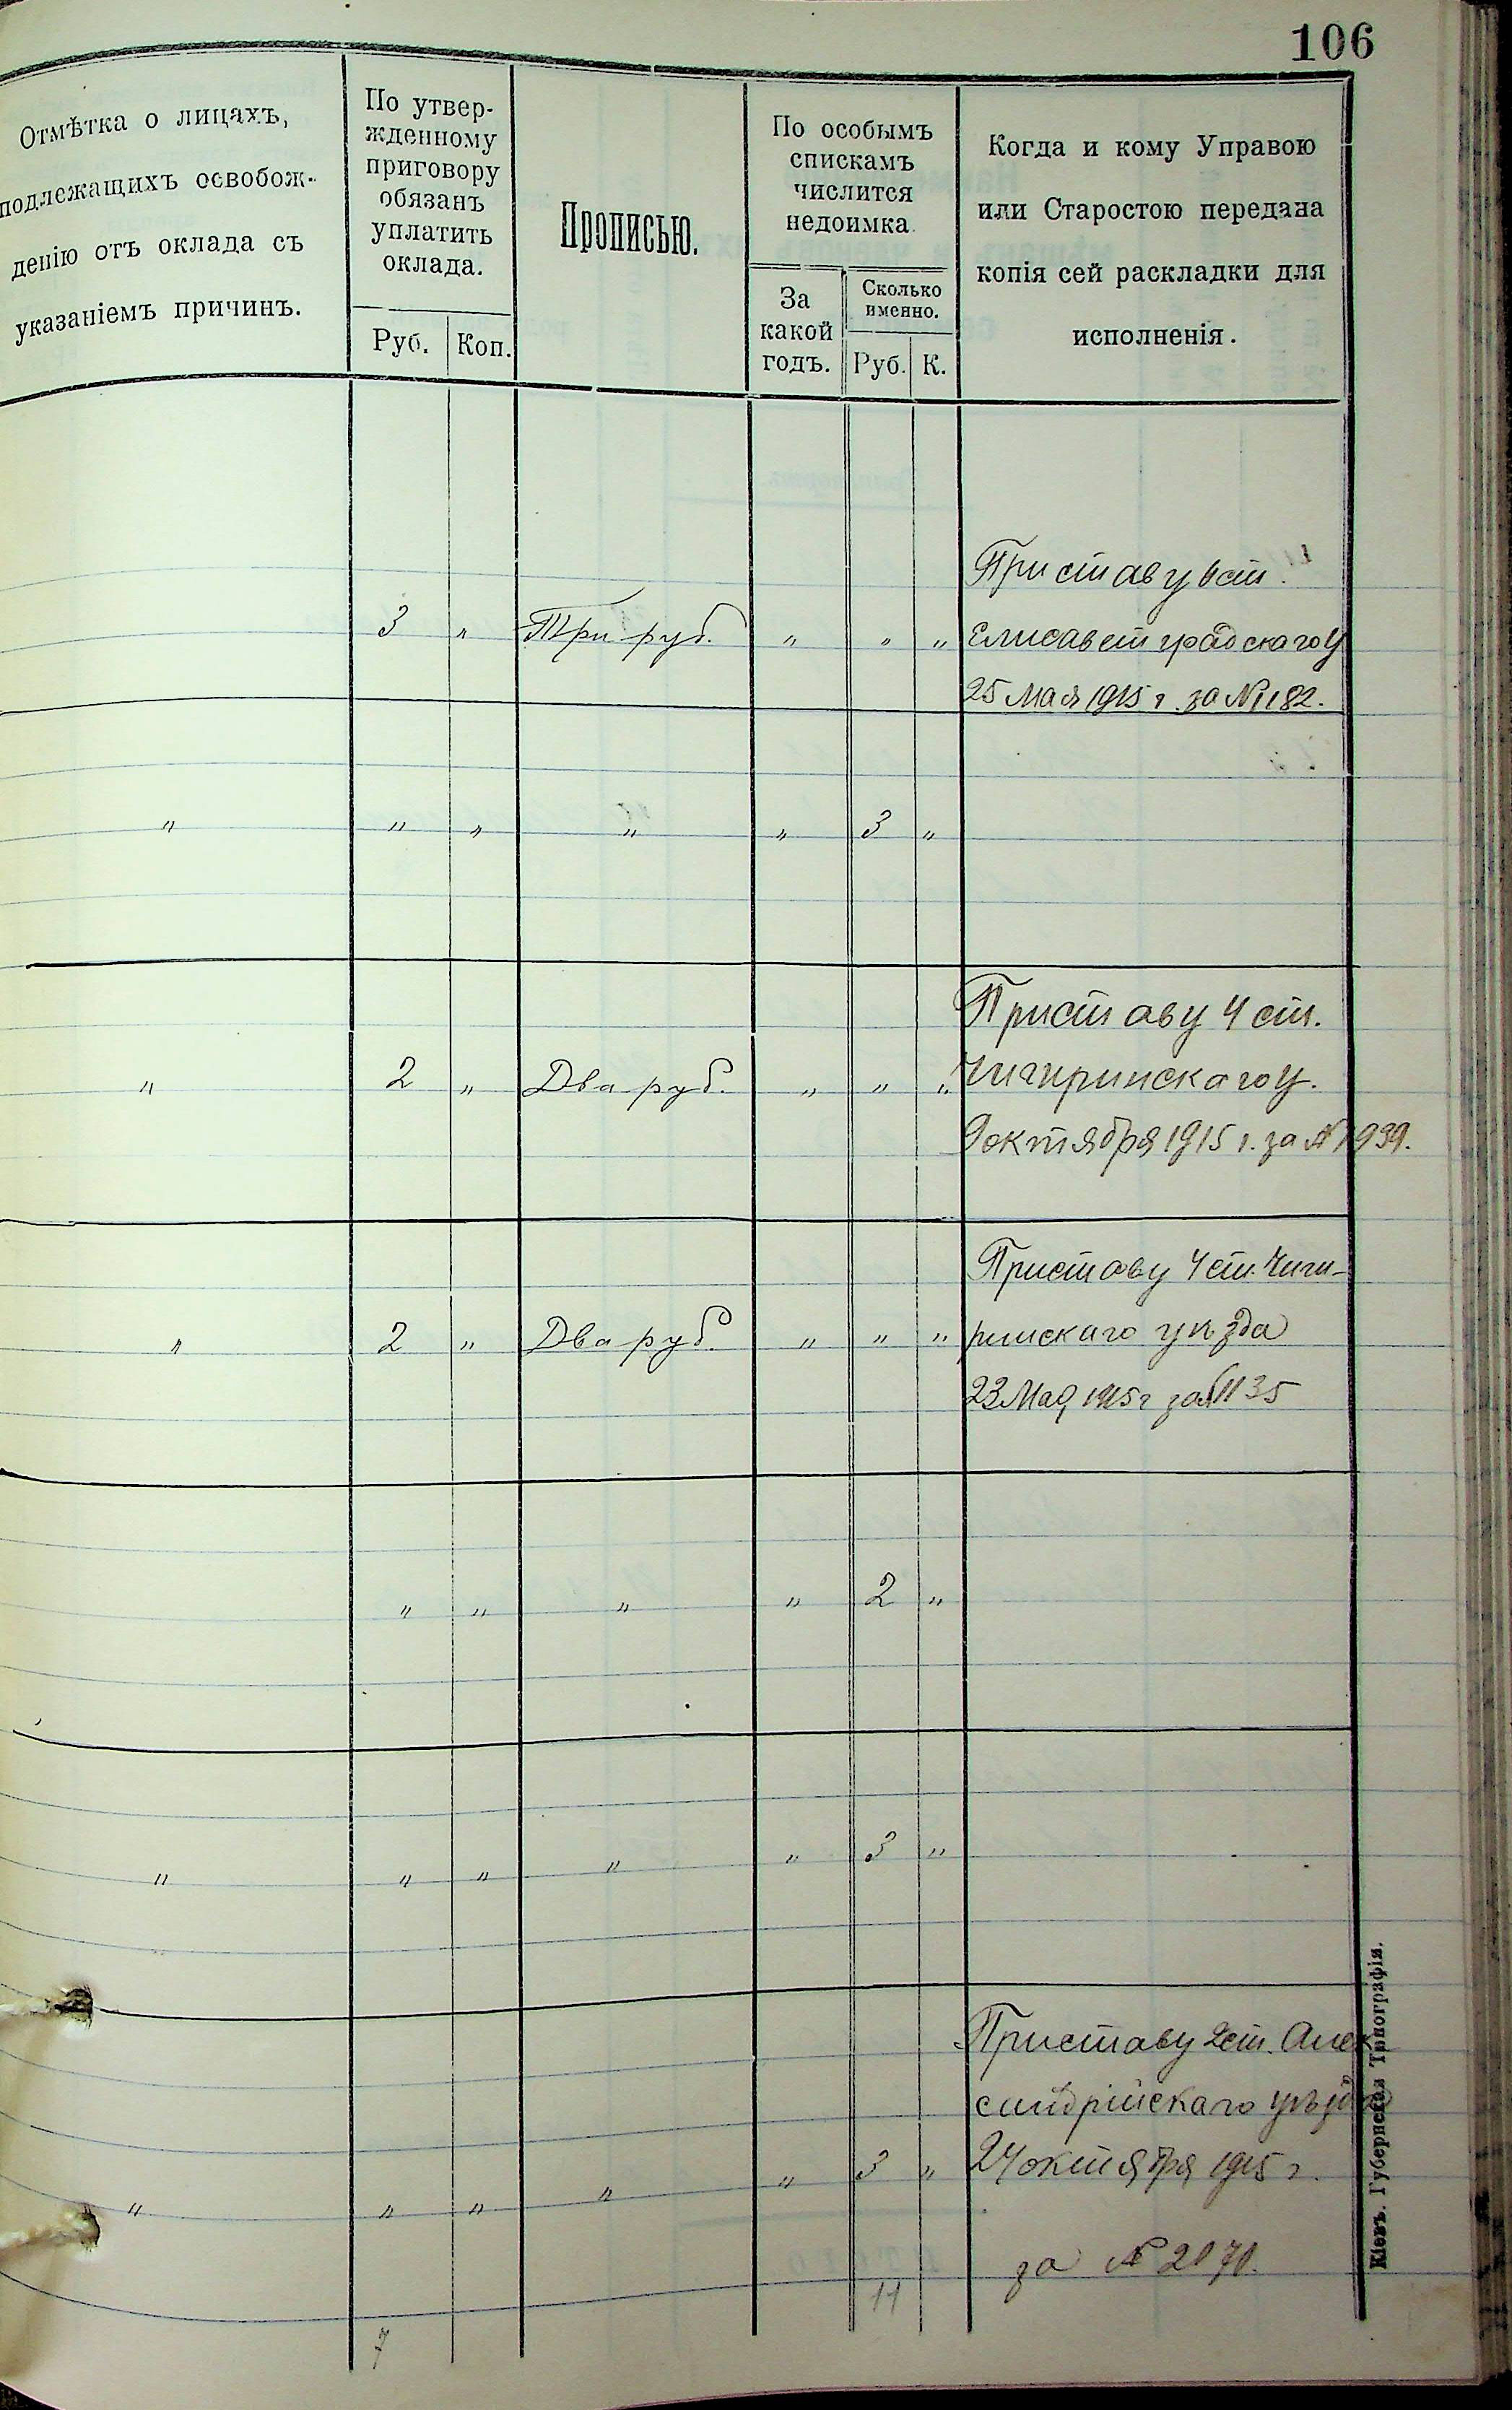 106
Отмѣтка о лицахъ,
подлежащихъ освобож-
денію отъ оклада съ
указаніемъ причинъ.
По утвер-
жденному
приговору
обязанъ
уплатить
оклада.
Руб. Коп.
Прописью.
По особымъ
спискамъ
числится
недоимка.
За
какой
годъ.
Сколько
именно.
Руб. К.
Когда и кому Управою
или Старостою передана
копія сей раскладки для
исполненія.
Приставу ст.
3 " Три руб. " " " Елисаветградскаго У
25 Мая 1915 г. за № 1182.
" " " " " 3 "
Приставу 4 ст.
" 2 " Два руб. " " " Чигиринскаго У.
9 октября 1915 г. за № 1939.
Приставу 4 ст. Чиги-
" 2 " Два руб. " " " ринскаго уѣзда
23 Мая 1915 г за № 1135
" " " " 2 "
" " " " " 3 "
Приставу 2 ст. Алек
сандрійскаго уѣзда
" " " " " 3 " 24 октября 1915 г.
за № 2070.
7 11
Кіевъ. Губернская Типографія.